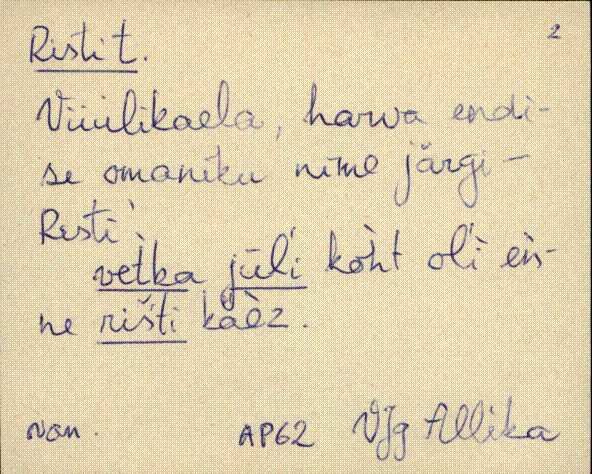 2
Risti t.
Viiulikaela, harva endi-
se omaniku nime järgi –
Risti.
vetka jüĺi kòht oĺi eǹ-
ne rišti käèz.
van. AP62 VJg Allika